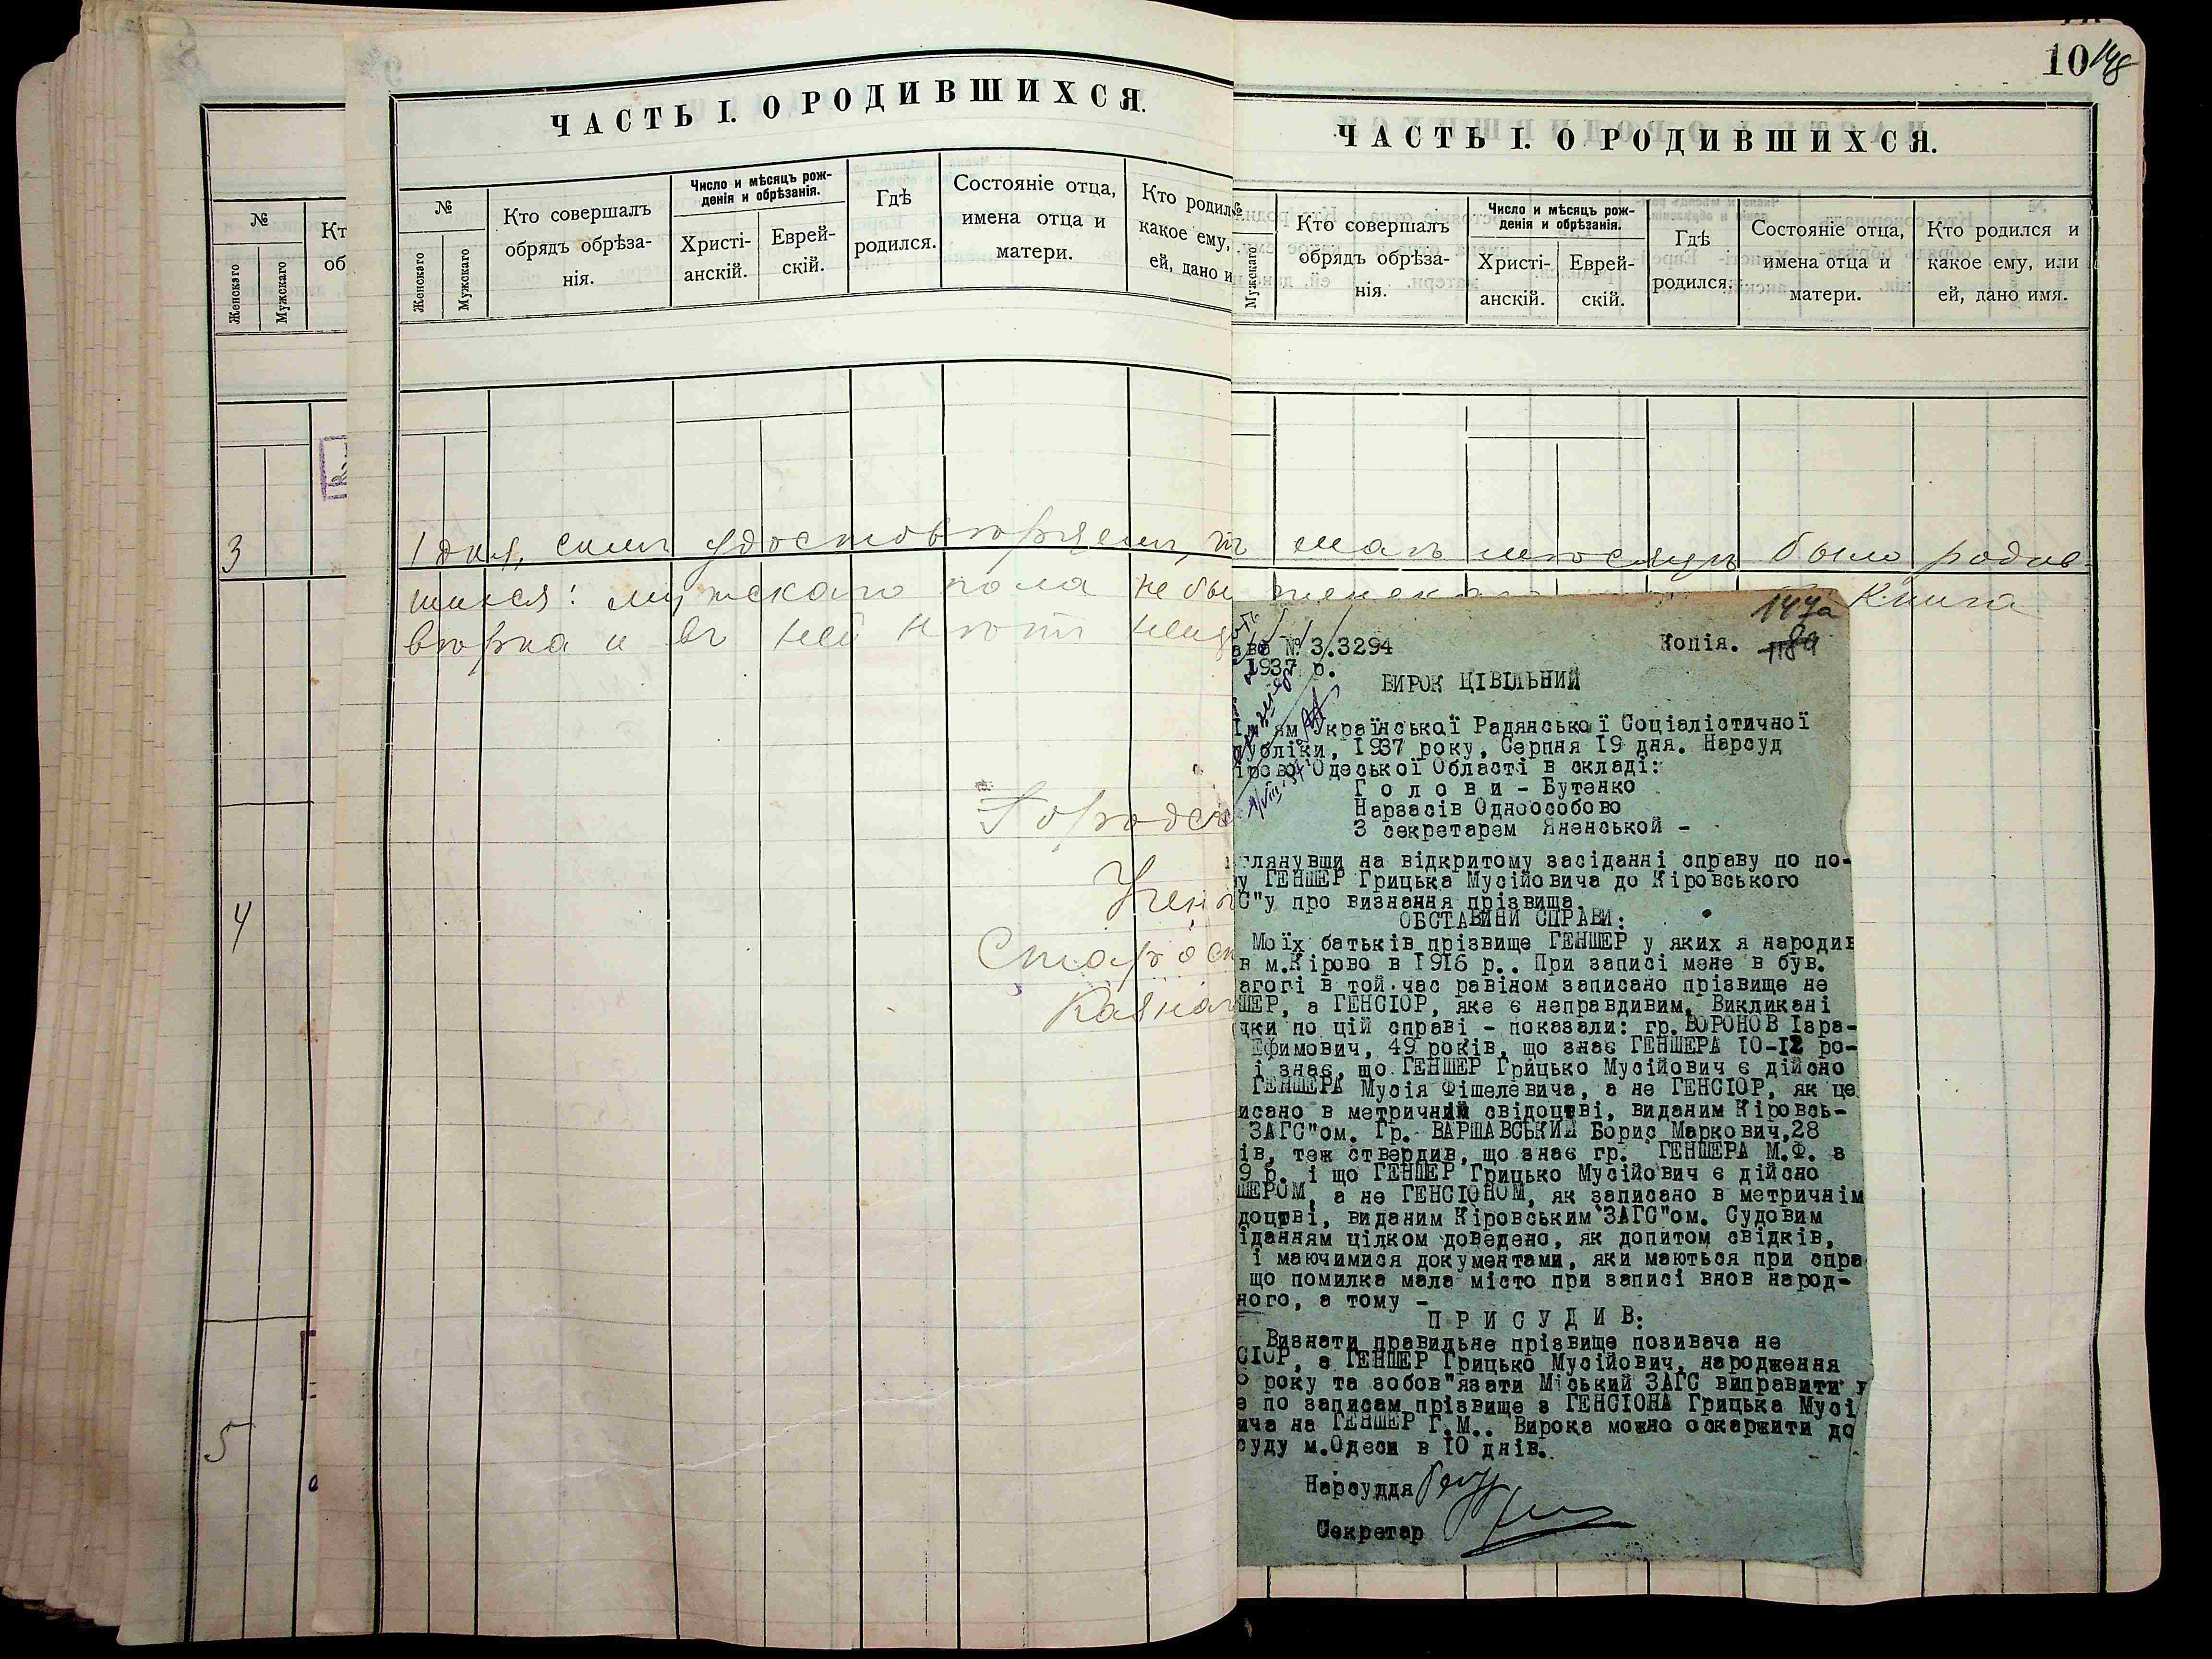 №
Женскаго
Мужскаго
3
4
5
ЧАСТЬ I. О РОДИВШИХСЯ.
№
Женскаго
Мужскаго
Кто совершалъ
обрядъ обрѣза-
нія.
Число и мѣсяцъ рож-
денія и обрѣзанія.
Христі-
анскій.
Еврей-
скій.
Гдѣ
родился.
Состояніе отца,
имена отца и
матери.
Кто родил
какое ему,
ей, дано и
1 дня, симъ удостовѣряемъ,
шихся: мужскаго пола не бы
вѣрна и въ ней нѣтъ
Городск
Учен
Старос
Казнач
10
148
ЧАСТЬ I. О РОДИВШИХСЯ.
№
Мужскаго
Кто совершалъ
обрядъ обрѣза-
нія.
Число и мѣсяцъ рож-
денія и обрѣзанія.
Христі-
анскій.
Еврей-
скій.
Гдѣ
родился.
Состояніе отца,
имена отца и
матери.
Кто родился и
какое ему, или
ей, дано имя.
маѣ мѣсяцѣ было родив
Книга
147а
ава № 3.3294 Копія.
1937 р.
ВИРОК ЦІВІЛЬНИЙ
ям Української Радянської Соціалістичної
публіки, 1937 року, Серпня 19 дня. Нарсуд
ірово Одеської Області в складі:
Голови - Бутенко
Нарзасів Одноособово
З секретарем Яненськой -
глянувши на відкритому засіданні справу по по-
у ГЕНШЕР Грицька Мусійовича до Кіровського
С"у про визнання прізвища.
ОБСТАВИНИ СПРАВИ:
Моїх батьків прізвище ГЕНШЕР у яких я народив
в м.Кірово в 1916 р.. При записі мене в був.
агогі в той час равіном записано прізвище не
ШЕР, а ГЕНСІОР, яке є неправдивим. Викликані
дки по цій справі - показали: гр.ВОРОНОВ Ізра-
Ефимович, 49 років, що знає ГЕНШЕРА 10-12 ро-
і знає, що ГЕНШЕР Грицько Мусійович є дійсно
ГЕНШЕРА Мусія Фішелевича, а не ГЕНСІОР, як це
исано в метричний свідоцтві, виданим Кіровсь-
ЗАГС"ом. Гр. ВАРШАВСЬКИЙ Борис Маркович,28
ів, теж ствердив, що знає гр. ГЕНШЕРА М.Ф. з
9 р. і що ГЕНШЕР Грицько Мусійович є дійсно
ШЕРОМ, а не ГЕНСІОНОМ, як записано в метричнім
доцтві, виданим Кіровським ЗАГС"ом. Судовим
іданням цілком доведено, як допитом свідків,
і маючимися документами, яки маються при спра
що помилка мала місто при записі внов народ-
ного, а тому -
ПРИСУДИВ:
Визнати правильне прізвище позивача не
СІОР, а ГЕНШЕР Грицько Мусійович, народження
6 року та зобов"язати Міський ЗАГС виправити у
е по записам прізвище з ГЕНСІОНА Грицька Мусі
ича на ГЕНШЕР Г.М.. Вирока можно оскаржити до
суду м.Одеси в 10 днів.
Нарсуддя
Секретар